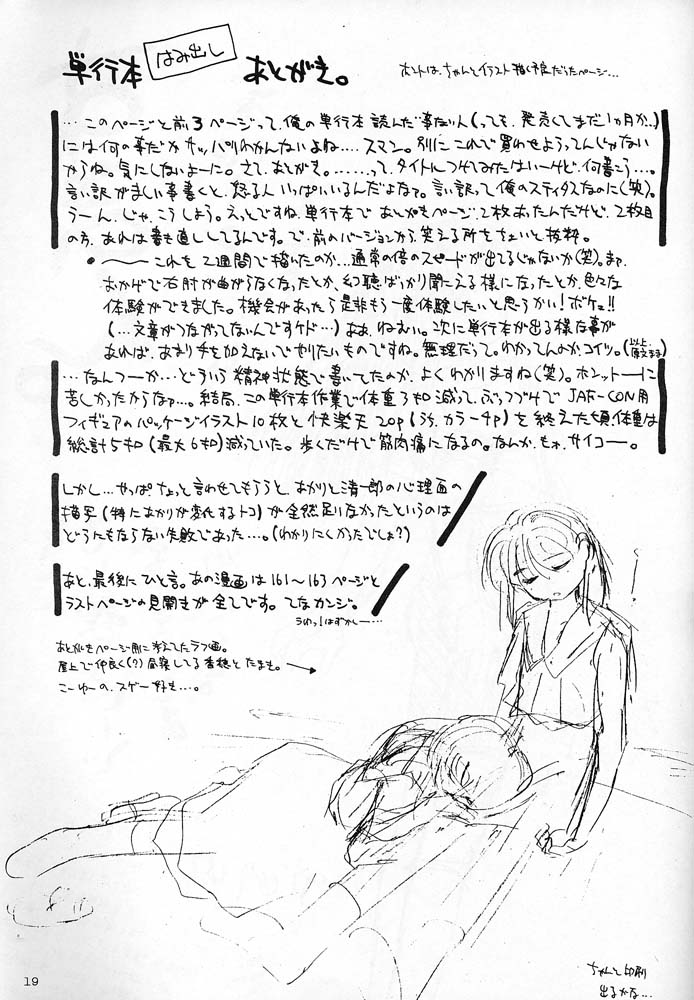 単行本 はみ出し あとがき。
ホントは、ちゃんとイラスト描く予定だったページ…
…このページと前3ページって、俺の単行本読んだ事ない人(っても、発売してまだ1ヵ月か…)
には何の事だかサッパリわかんないよね…。スマン。別にこれで買わせようってんじゃない
からね。気にしないよーに。さて、あとがき。……って、タイトルつけてみたはいーけど、何書こう…。
言い訳がましい事書くと、怒る人いっぱいいるんだよなァ。言い訳って俺のスティタスなのに(笑)。
うーん、じゃ、こうしよう。えっとですね、単行本であとがきページ、2枚あったんだけど、2枚目
の方、あれは書き直ししてるんです。で、前のバージョンから、笑える所をちょいと抜粋。
●〜これを2週間で描いたのか…通常の倍のスピードが出てるじゃないか(笑)。まァ、
おかげで右肘が曲がらなくなったとか、幻聴ばっかり聞こえる様になったとか、色々な
体験ができました。機会があったら是非もう一度体験したいと思うかい!ボケェ!!
(…文章がつながってないんですケド…)ああ、ねむい。次に単行本が出る様な事が
あれば、あまり手を加えないでやりたいものですね。無理だって。わかってんのかコイツ。(以上原文まま)
…なんつーか…どういう精神状態で書いてたのか、よくわかりますね(笑)。ホンットーに
苦しかったからなァ…。結局、この単行本作業で体重3キロ減って、ぶっつづけでJAF-CON用
フィギュアのパッケージイラスト10枚と快楽天20p(うち、カラー4p)を終えた頃、体重は
総計5キロ(最大6キロ)減っていた。歩くだけで筋肉痛になるの。なんか、もォ、サイコー。
しかし…やっぱ、ちょっと言わせてもらうと、あかりと清一郎の心理面の
描写(特にあかりが変化するトコ)が全然足りなかったというのは
どうにもならない失敗であった…。(わかりにくかったでしょ?)
あと、最後にひと言。あの漫画は161〜163ページと
ラストページの見開きが全てです。てなカンジ。
うわっ!はずかしー…
あとがきページ用に考えてたラフ画。
屋上で仲良く(?)昼寝してる香穂とたまき。→
こーゆーの、スゲー好き…。
ちゃんと印刷
出るかな…
19